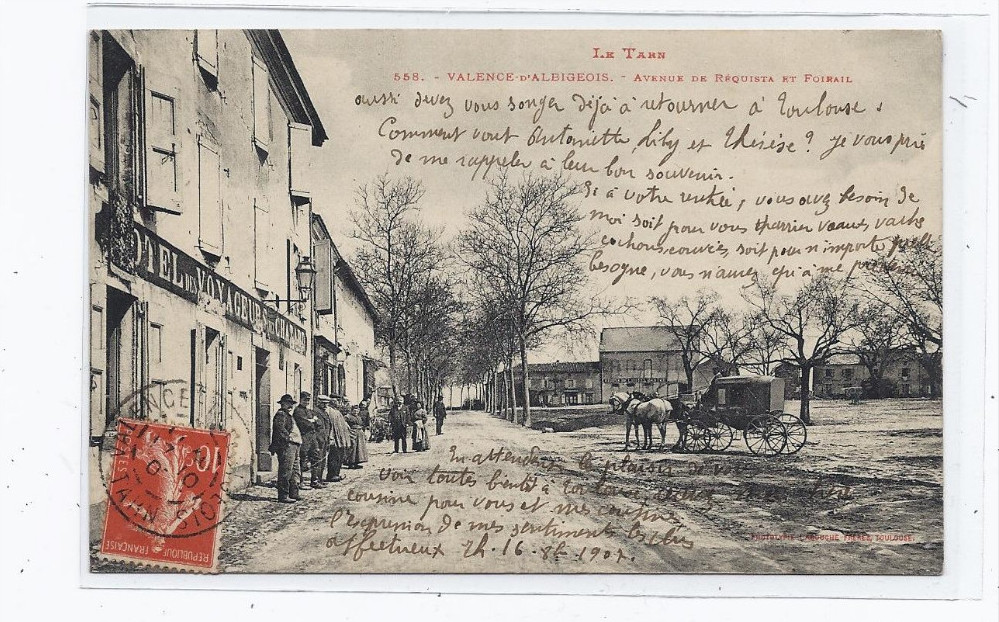 LE TARN
558. - VALENCE-D'ALBIGEOIS. - AVENUE DE RÉQUISTA ET FOIRAIL
aussi devez vous songer déjà à retourner à Toulouse.
Comment vont Antoinette, Liby et Thérèse? je vous prie
de me rappeler à leur bon souvenir.
Si à votre rentrée, vous avez besoin de
moi soit pour vous charrier veaux, vache
cochons couvées, soit pour n'importe quelle
besogne, vous n'aurez qu'à me prévenir
HOTEL DES VOYAGEURS
En attendant le plaisir de vous
voir toutes bientôt à Toulouse,
cousine pour vous et mes cousines
l'expression de mes sentiments les plus
affectueux Th. 16-8bre 1907.
10c
RÉPUBLIQUE FRANÇAISE
VALENCE
TARN
PHOTOTYPIE LABOUCHE FRÈRES, TOULOUSE.